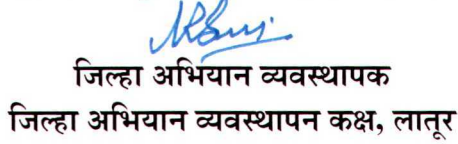 जिल्हा अभियान व्यवस्थापक
जिल्हा अभियान व्यवस्थापन कक्ष, लातूर